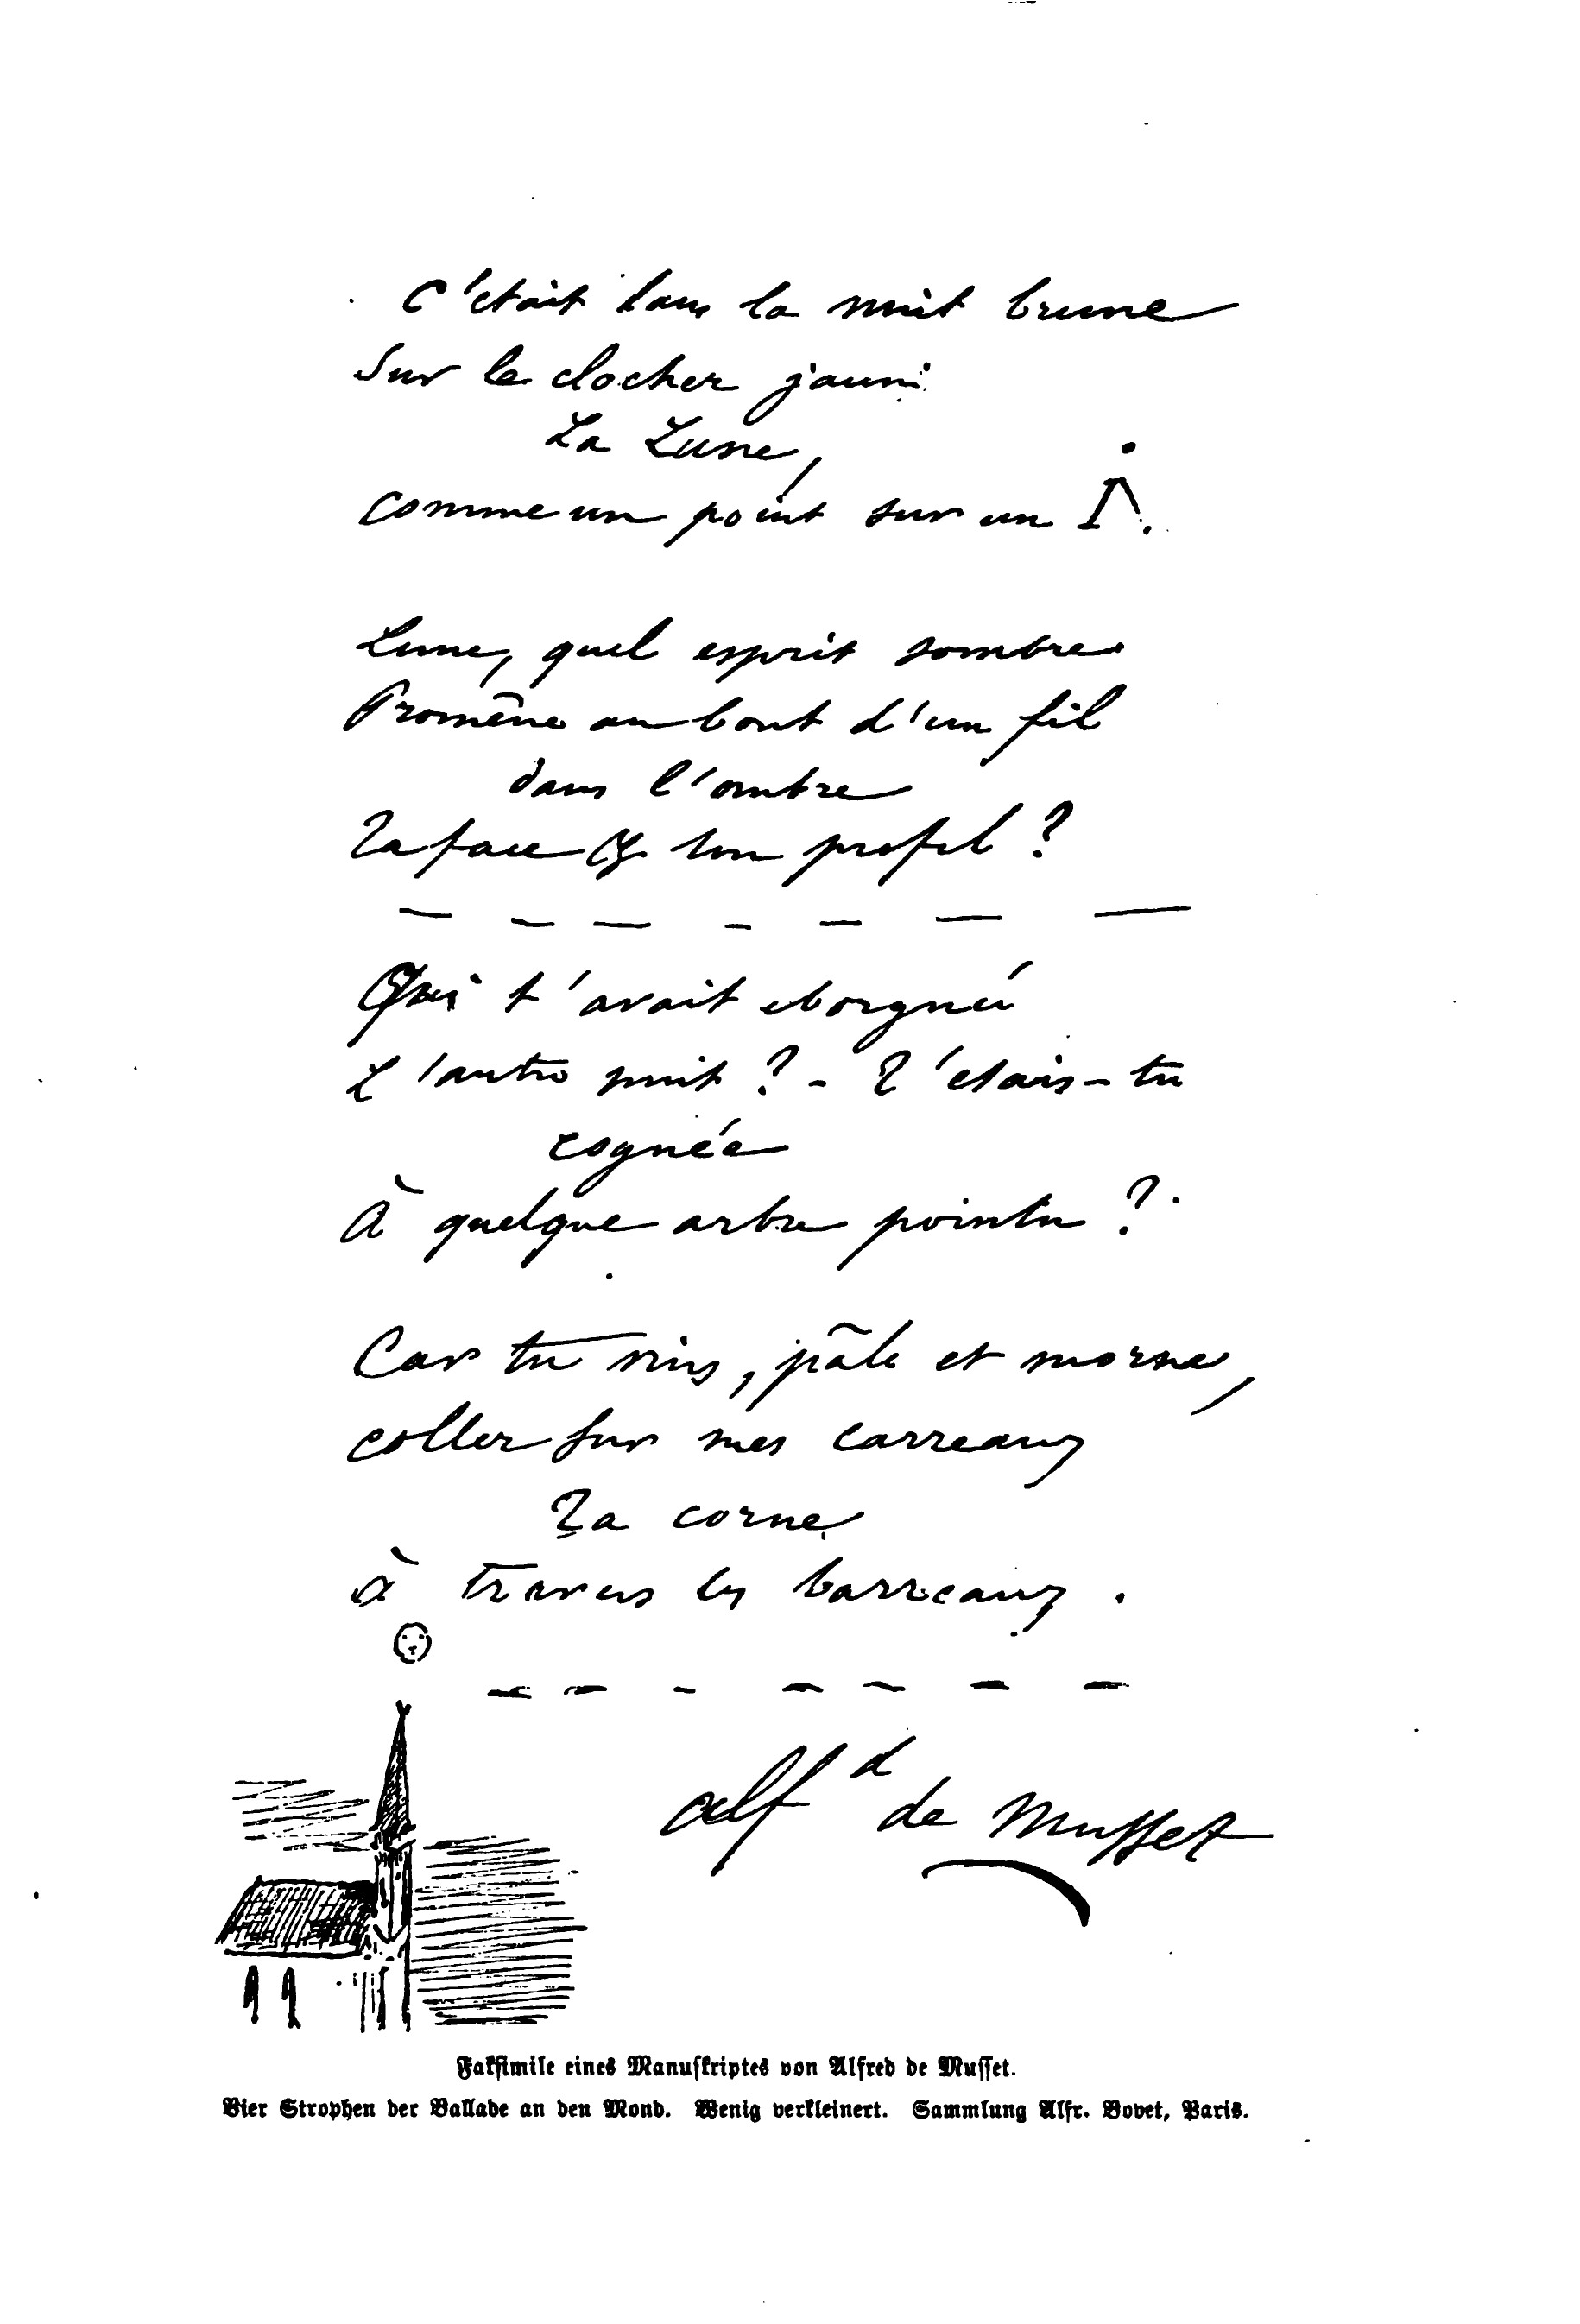 C'était dans la nuit brune
Sur le clocher jauni
La Lune,
comme un point sur un I.
Lune, quel esprit sombre
Promêne au bout d'un fil
dans l'ombre
Ta face & ton profil ?
Qui t'avait eborgnée
L'autre nuit ? - T'étais-tu
cognée
À quelque arbre pointu ?
Car tu vins, pâle et morne,
coller sur mes carreaux
Ta corne
à travers les barreaux.
Alfd de Musset
Faksimile eines Manuskriptes von Alfred de Musset.
Vier Strophen der Ballade an den Mond. Wenig verkleinert. Sammlung Alfr. Bovet, Paris.